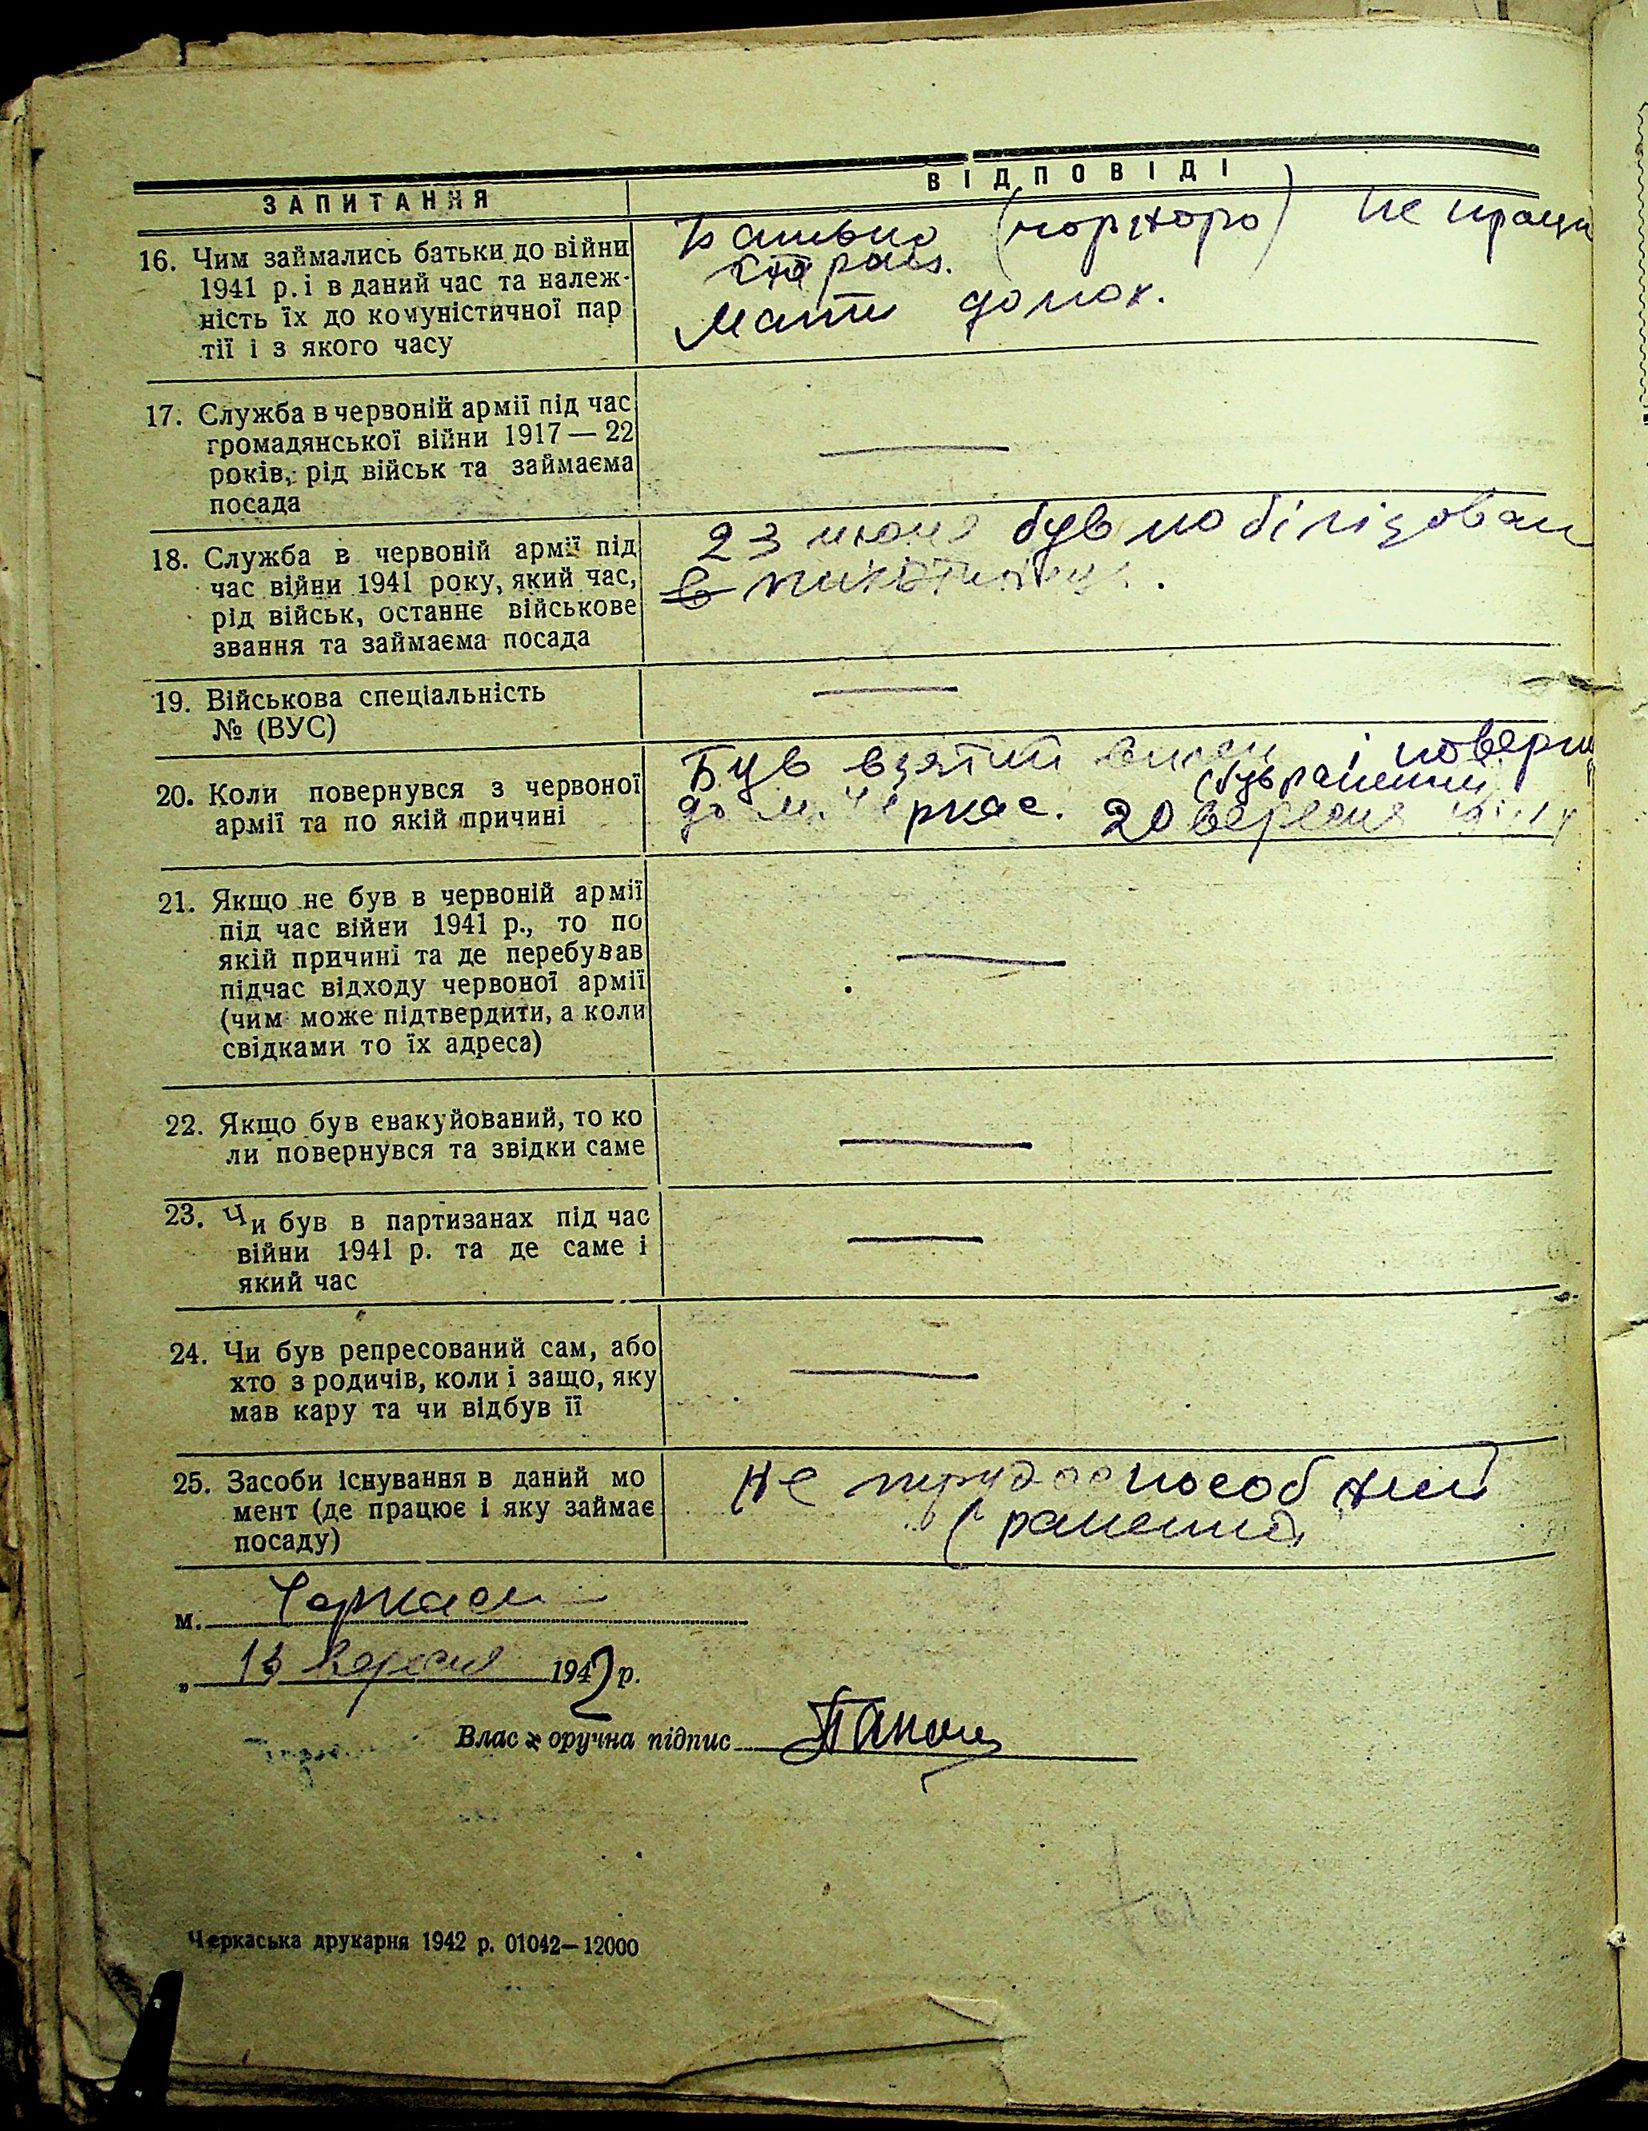 ЗАПИТАННЯ
ВІДПОВІДІ
16. Чим займались батьки до війни
1941 р. і в даний час та належ-
ність їх до комуністичної пар
тії і з якого часу
Батько не праци
Мати домох.
17. Служба в червоній армії під час
громадянської війни 1917 — 22
років, рід військ та займаєма
посада
—
18. Служба в червоній армії під
час війни 1941 року, який час,
рід військ, останнє військове
звання та займаєма посада
23 июня був мобілізован
в
19. Військова спеціальність
№ (ВУС)
—
20. Коли повернувся з червоної
армії та по якій причині
Був взятий і поверн
(був ранений
до м. Черкас. 20 вересня
21. Якщо не був в червоній армії
під час війни 1941 р., то по
якій причині та де перебував
підчас відходу червоної армії
(чим може підтвердити, а коли
свідками то їх адреса)
—
22. Якщо був евакуйований, то ко
ли повернувся та звідки саме
—
23. Чи був в партизанах під час
війни 1941 р. та де саме і
який час
—
24. Чи був репресований сам, або
хто з родичів, коли і защо, яку
мав кару та чи відбув її
—
25. Засоби існування в даний мо
мент (де працює і яку займає
посаду)
Не трудоспособний
(ранений
м. Черкаси
„ 13 вересня 1942 р.
Власоручна підпис
Черкаська друкарня 1942 р. 01042—12000